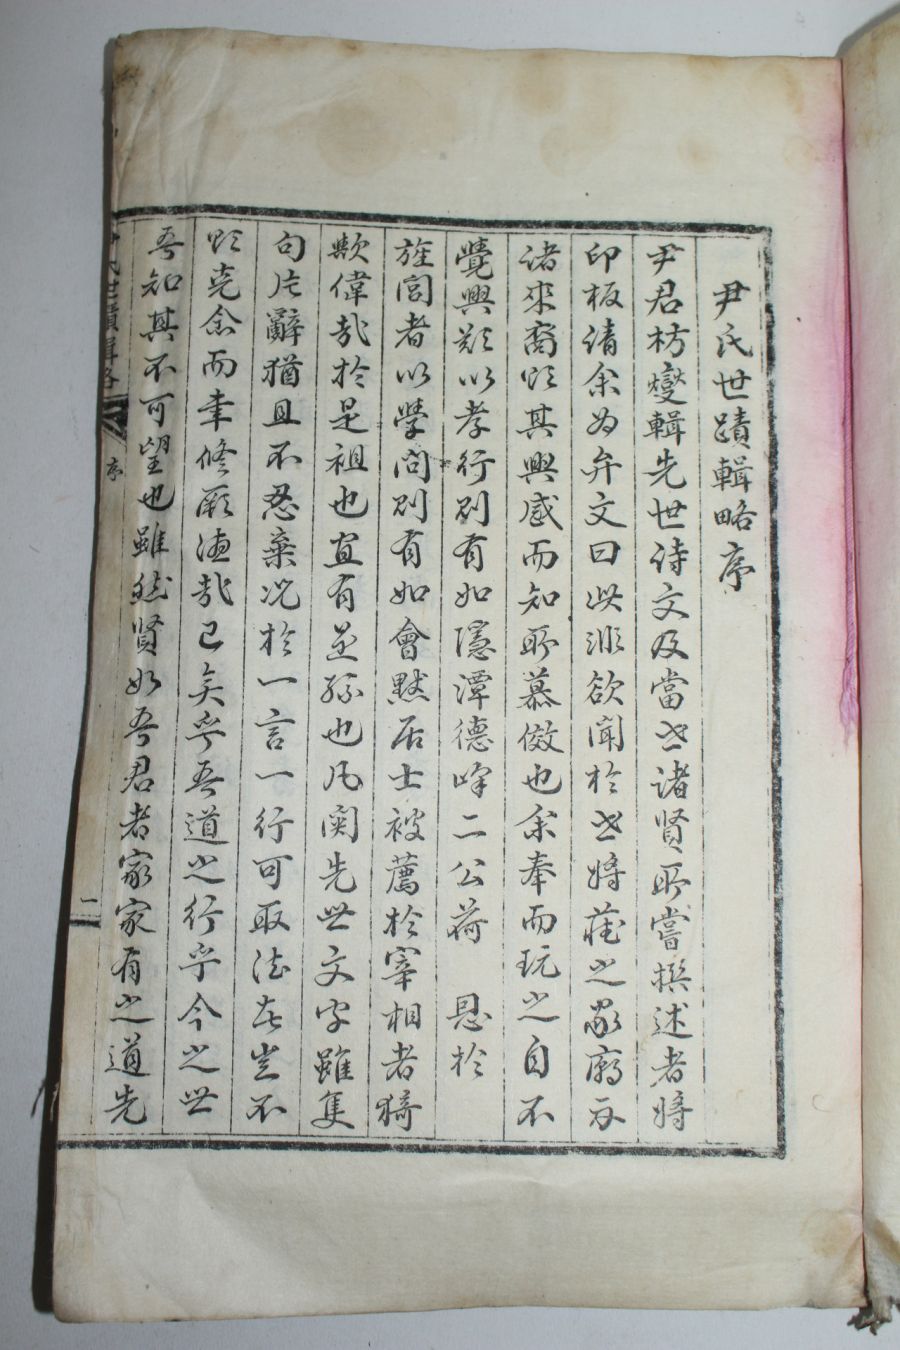 尹氏世蹟輯略序
尹君枋燮輯先世詩文及當世諸賢所嘗撰述者將
印板請余為弁文曰此非欲聞於世將莊之家廟示
諸來裔以其興感而知所慕倣也余奉而玩之自不
覺興歎以孝行則有如隱潭德峰二公荷 恩於
旌閭者以學問則有如會默居士被薦於宰相者猗
歟偉哉於是祖也宜有是孫也凡関先世文字雖隻
句片辭猶且不忍棄況於一言一行可取法在豈不
欲克念而聿修厥德哉已矣乎吾道之行乎今之世
吾知其不可望也雖然賢如吾君者家家有之道先
尹氏世蹟輯略
序
一